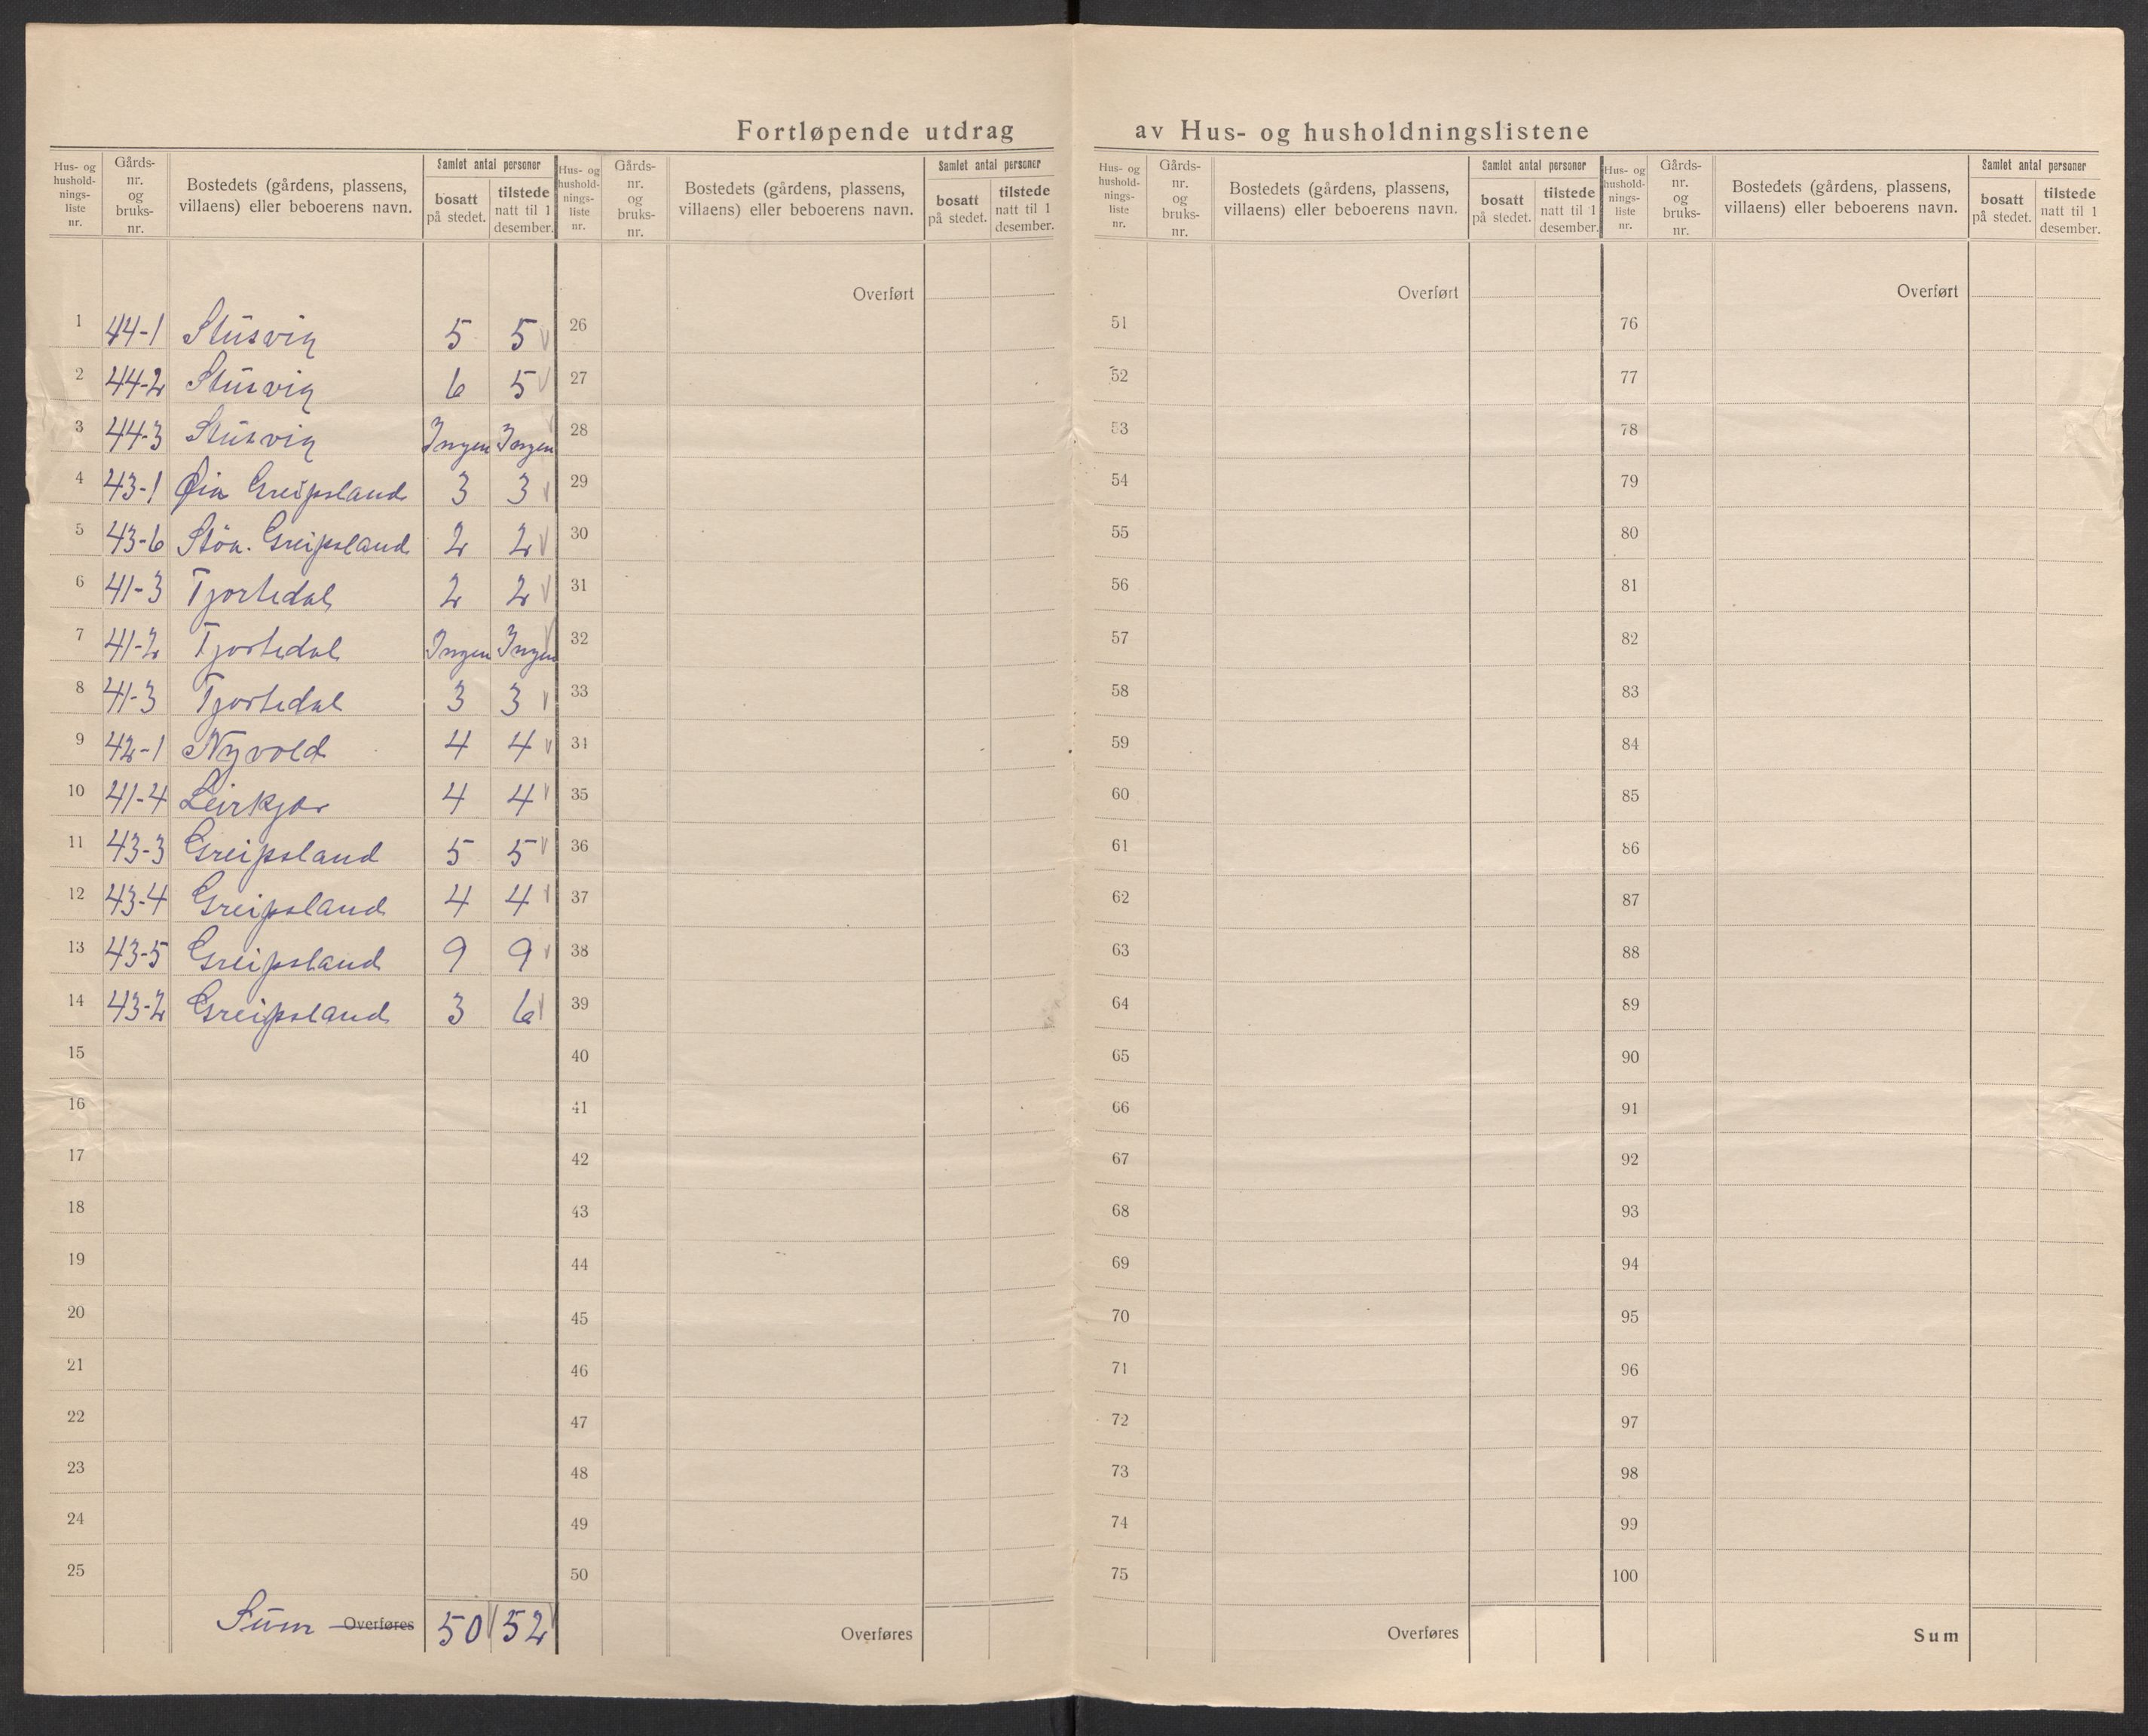 Fortløpende utdrag av Hus- og husholdningslistene
Hus- og hushold-nings-liste nr. | Gårds-nr. og bruks-nr. | Bostedets (gårdens, plassens, villaens) eller beboerens navn. | Samlet antal personer | bosatt på stedet. | tilstede natt til 1 desember.
Hus- og hushold-nings-liste nr. | Gårds-nr. og bruks-nr. | Bostedets (gårdens, plassens, villaens) eller beboerens navn. | Samlet antal personer | bosatt på stedet. | tilstede natt til 1 desember.
Hus- og hushold-nings-liste nr. | Gårds-nr. og bruks-nr. | Bostedets (gårdens, plassens, villaens) eller beboerens navn. | Samlet antal personer | bosatt på stedet. | tilstede natt til 1 desember.
Hus- og hushold-nings-liste nr. | Gårds-nr. og bruks-nr. | Bostedets (gårdens, plassens, villaens) eller beboerens navn. | Samlet antal personer | bosatt på stedet. | tilstede natt til 1 desember.
Overført Overført Overført
1 44-1 Stusvig 5 5 26 51 76
2 44-2 Stusvig 6 5 27 52 77
3 44-3 Stusvig Ingen Ingen 28 53 78
4 43-1 Greipsland 3 3 29 54 79
5 43-6 Greipsland 2 2 30 55 80
6 41-3 Tjortedal 2 2 31 56 81
7 41-2 Tjortedal Ingen Ingen 32 57 82
8 41-3 Tjortedal 3 3 33 58 83
9 42-1 Nyvold 4 4 34 59 84
10 41-4 Leirkjær 4 4 35 60 85
11 43-3 Greipsland 5 5 36 61 86
12 43-4 Greipsland 4 4 37 62 87
13 43-5 Greipsland 9 9 38 63 88
14 43-2 Greipsland 3 6 39 64 89
15 40 65 90
16 41 66 91
17 42 67 92
18 43 68 93
19 44 69 94
20 45 70 95
21 46 71 96
22 47 72 97
23 48 73 98
24 49 74 99
25 50 75 100
Sum Overføres 50 52 Overføres Overføres Sum